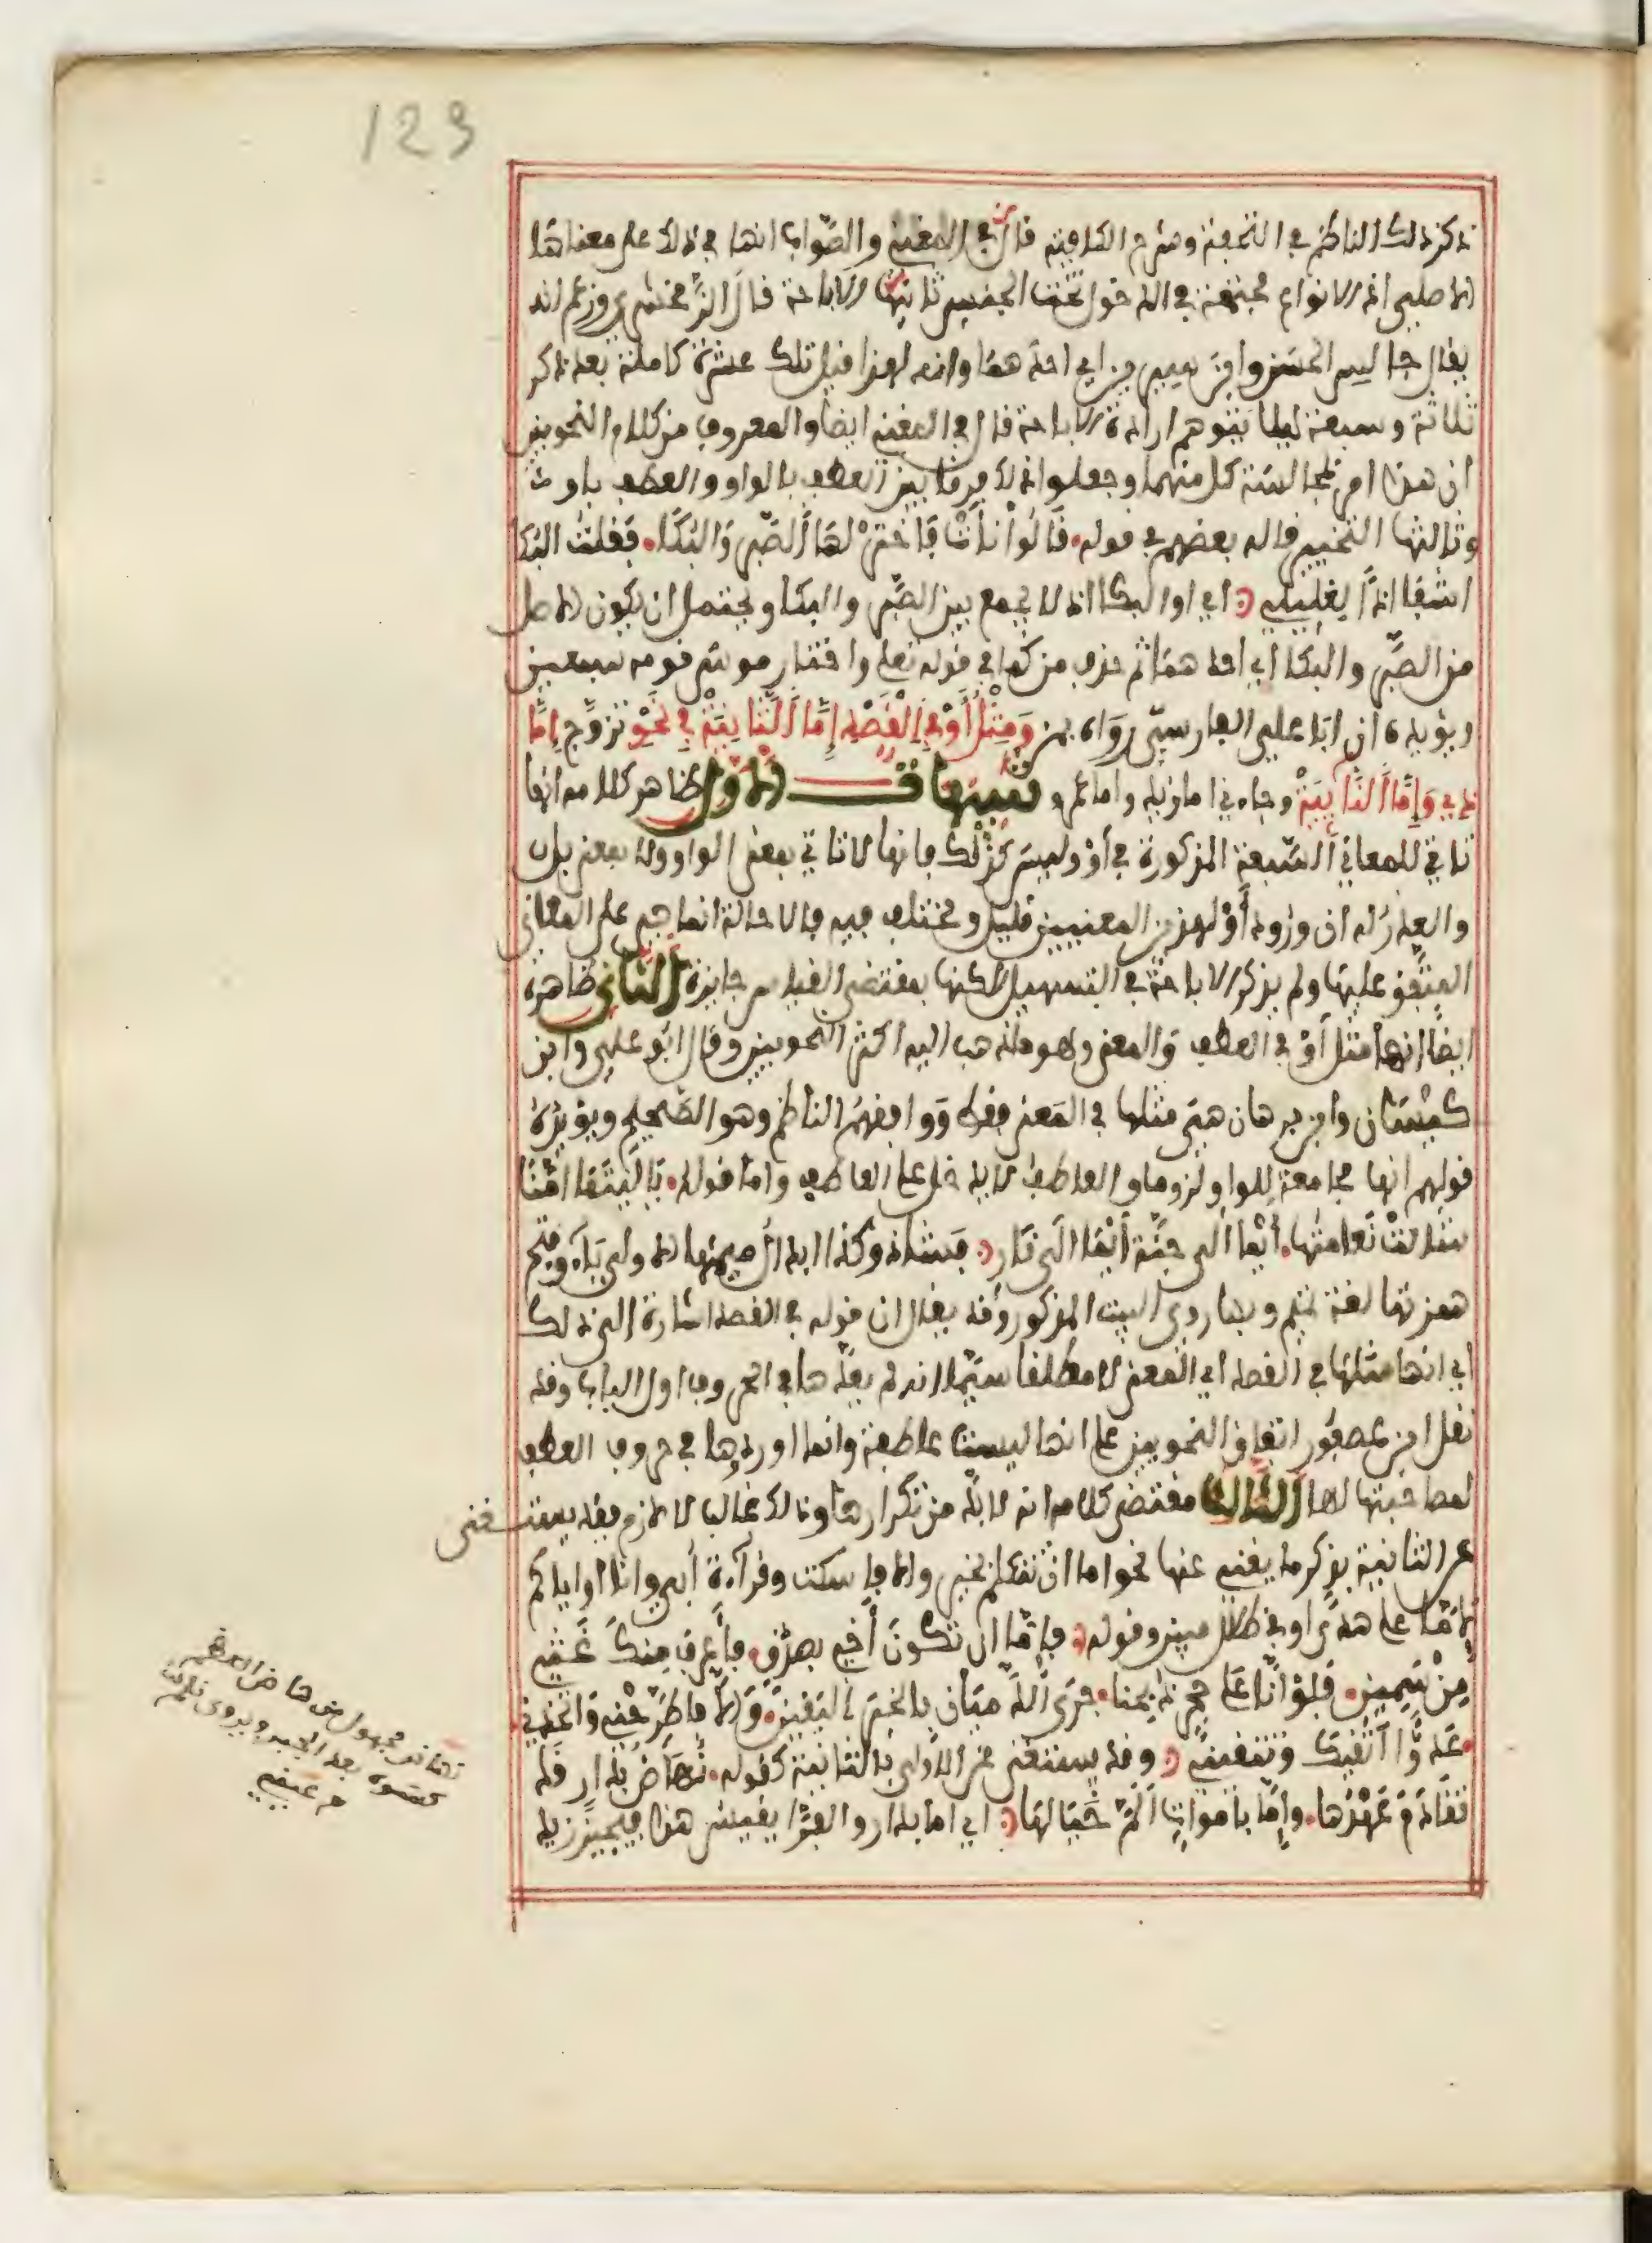 123
ذكر ذلك الناظم في التحفة وشرح الكافية قال في المغني والصواب انها في ذلك على معناها
الاصلي اذ الانواع مجتمعة في الدخول تحت الجنس ثانيها الاباحة قال الزمخشري وزعم انه
يقال جالس الحسن وابن سيرين اي احدهما وانه لهذا قيل تلك عشرة كاملة بعد ذكر
ثلاثة وسبعة ليلا يتوهم ارادة الاباحة قال في المغني ايضا والمعروف من كلام النحويين
ان هذا امر بمجالسة كل منهما وجعلوا ذلك فرقا بين العطف بالواو والعطف باو
وثالثها التخيير قاله بعضهم في قوله قَالُوا نَأَتْ فَاخْتَرْ لَهَا الصَّبْرَ وَالبُكَا فَقُلْتُ البُكَا
اشفا اذا لِغَلِيلِي اي او البكا اذ لا يجمع بين الصبر والبكا ويحتمل ان يكون الاصل
من الصبر والبكا اي احدهما ثم حذف من كما في قوله تعلى واختار موسى قومه سبعين
ويؤيده ان ابا علي الفارسي رواه بمن وَمِثْلُ أَوْ فِي القَصْدِ إِمَّا الثَّانِيَة فِي نَحْوِ تزوج إِمَّا
ذي وَإِمَّا النَّائِيَة وجاءني اما زيد واما عمرو تنبيهات الاول ظاهر كلامه انها
تاتي للمعاني السبعة المذكورة في أو وليس كذلك فانها لا تاتي بمعنى الواو ولا بمعنى بل
والعذر له ان ورود أو لهذين المعنيين قليل ومختلف فيه فالاحالة انما هي على المعاني
المتفق عليها ولم يذكر الاباحة في التسهيل لكنها بمقتضى القياس جايزة الثاني ظاهره
ايضا انها مثل أو في العطف والمعنى وهو ما ذهب اليه اكثر النحويين وقال ابو علي وابن
كيسان وابن برهان هي مثلها في المعنى فقط ووافقهم الناظم وهو الصحيح ويؤيده
قولهم انها مجامعة للواو لزوما والعاطف لا يدخل على العاطف واما قوله يَا لَيْتَمَا امُّنَا
شالت نَعَامَتُهَا أيما إلى جَنَّة أيما الى نَار فشاذ وكذا ابدال ميمها الاولى ياء وفتح
همزتها لغة تميم وبها روي البيت المذكور وقد يقال ان قوله في القصد اشارة الى ذلك
اي انها مثلها في القصد اي المعنى لا مطلقا سيما انه لم يعدها في الحروف اول الباب وقد
نقل ابن عصفور اتفاق النحويين على انها ليست عاطفة وانما اوردوها في حروف العطف
لمصاحبتها لها الثالث مقتضى كلامه انه لا بد من تكرارها وذلك غالب لا لازم فقد يستغنى
عن الثانية بذكر ما يغني عنها نحو اما ان تتكلم بخير والا فاسكت وقرآءة أبي وانا او اياكم
لامّا على هدى او في ظلل مبين وقوله فإما ان تكون أخي بصدق فأعرف منك غَثِّي
مِنْ سَمِينِي فَلَوْ أنَّا عَلَى حجر ذبحنا جرى الدَّمَيَانِ بالخبر اليَقِين وَإِلَّا فاطَّرِحْنِي وَاتخذني
عَدُوًّا اتَّقِيكَ وَتَتَّقِينِي وقد يستغنى عن الاولى بالثانية كقوله تُهَاضُ بِدَارٍ قَدْ
تَقَادَمَ عَهْدُهَا وإمَّا بأموات ألمَّ خَيَالُهَا اي اما بدار والفرّا يقيس هذا فيجيز زيد
تهاض مجهول هاض العظم
كسره بعد الجبر ويروى